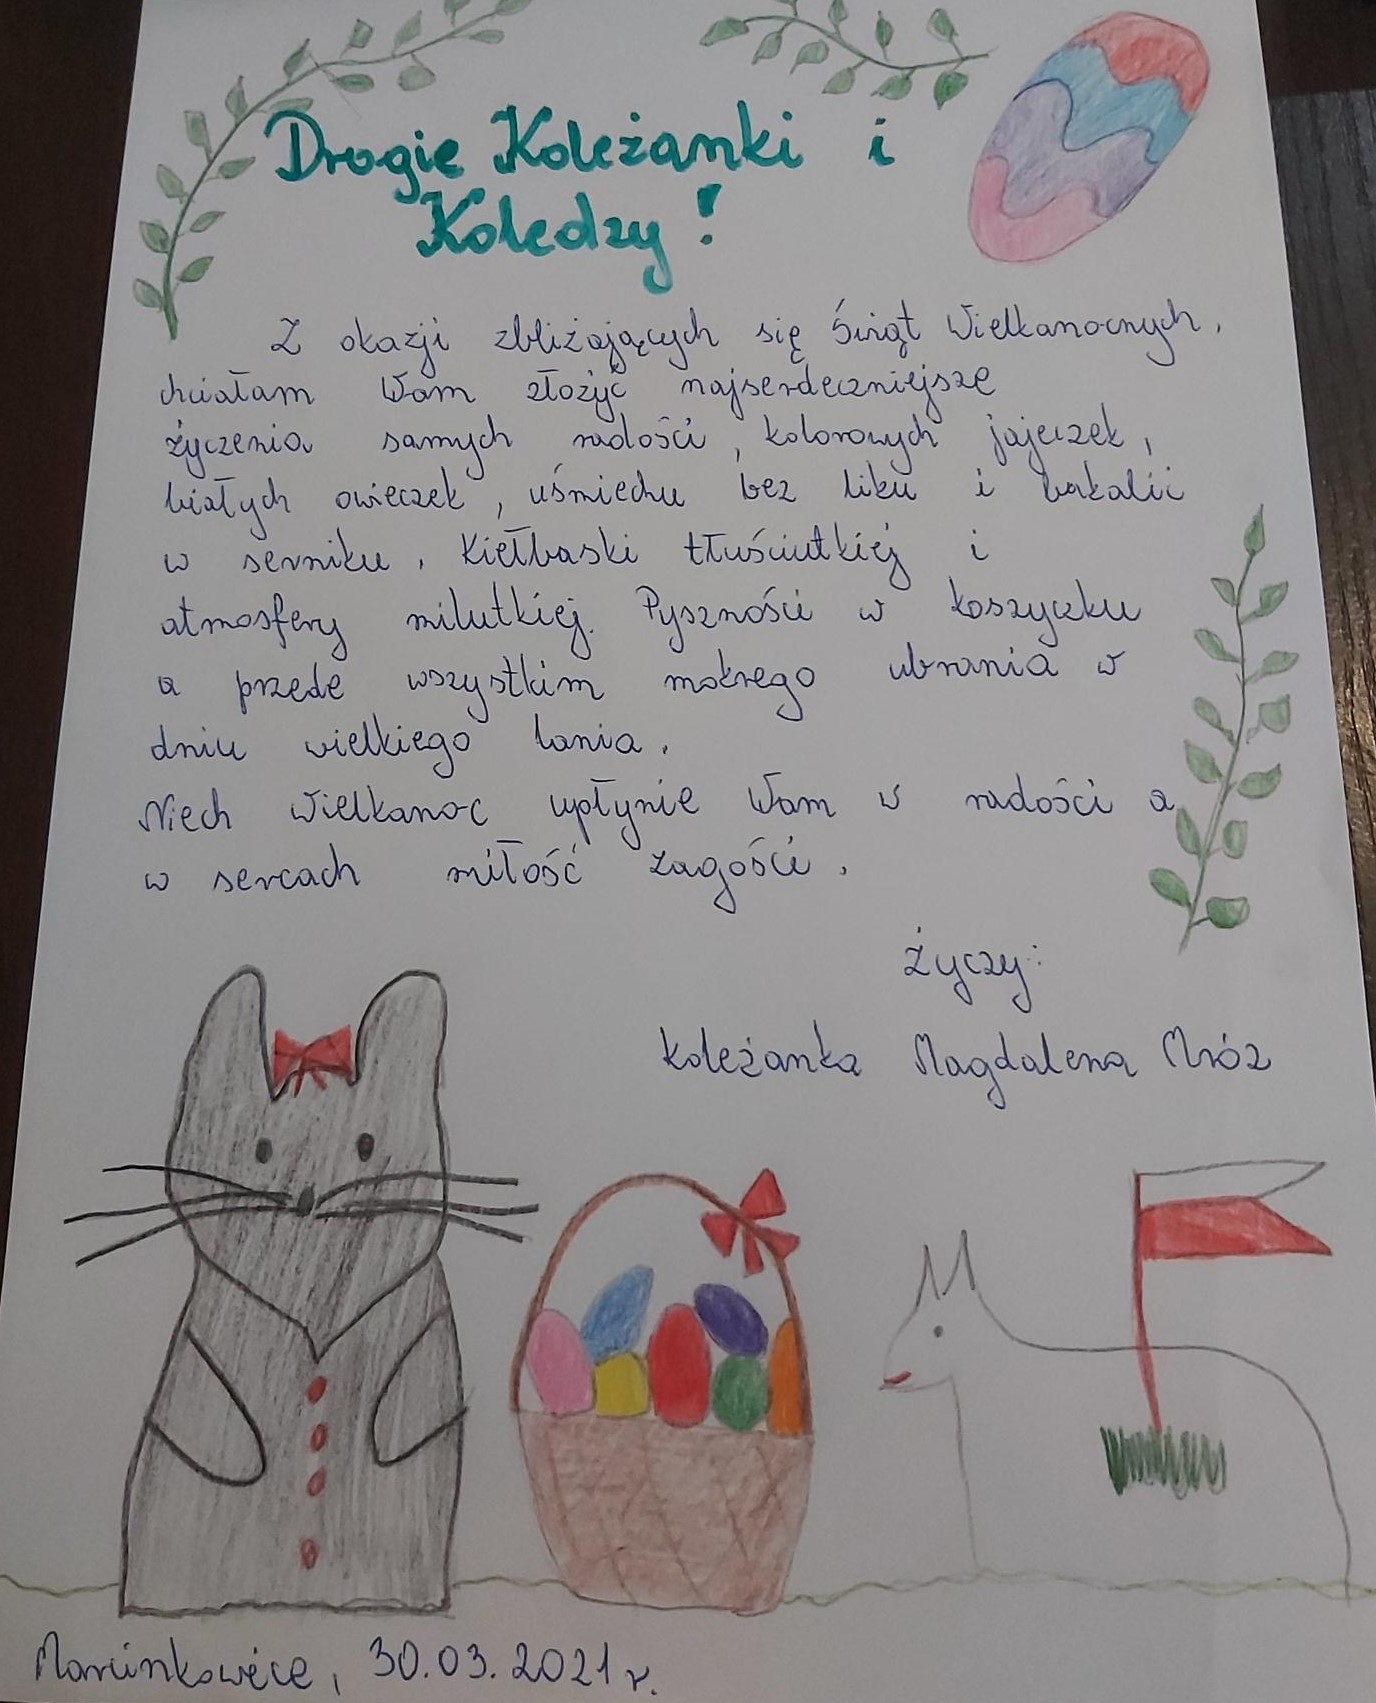 Drogie Koleżanki i
Koledzy!
Z okazji zbliżających się Świąt Wielkanocnych,
chciałam Wam złożyć najserdeczniejsze
życzenia samych radości, kolorowych jajeczek,
białych owieczek, uśmiechu bez liku i bakalii
w serniku, kiełbaski tłuściutkiej i
atmosfery milutkiej. Pyszności w koszyczku
a przede wszystkim mokrego ubrania w
dniu wielkiego lania.
Niech Wielkanoc upłynie Wam w radości a
w sercach miłość zagości.
Życzy:
koleżanka Magdalena Mróz
Marcinkowice, 30.03.2021 r.